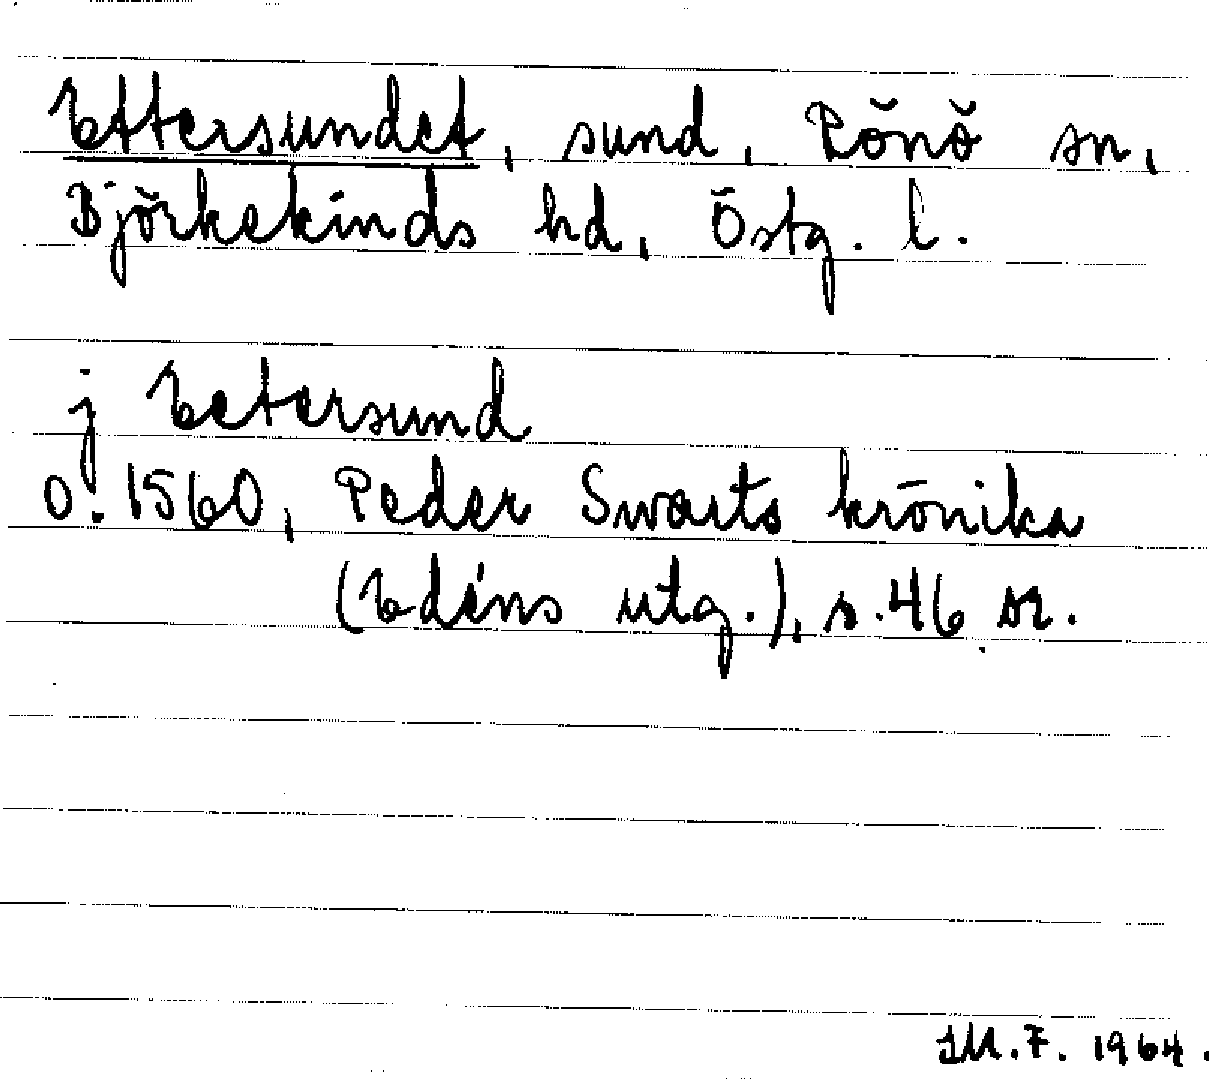 Ettersundet, sund, Rönö sn,
Björkekinds hd, Östg. l.
j Eetersund
o. 1560, Peder Swarts krönika
(Edéns utg.), s. 46 sr.
I.M.F. 1964.